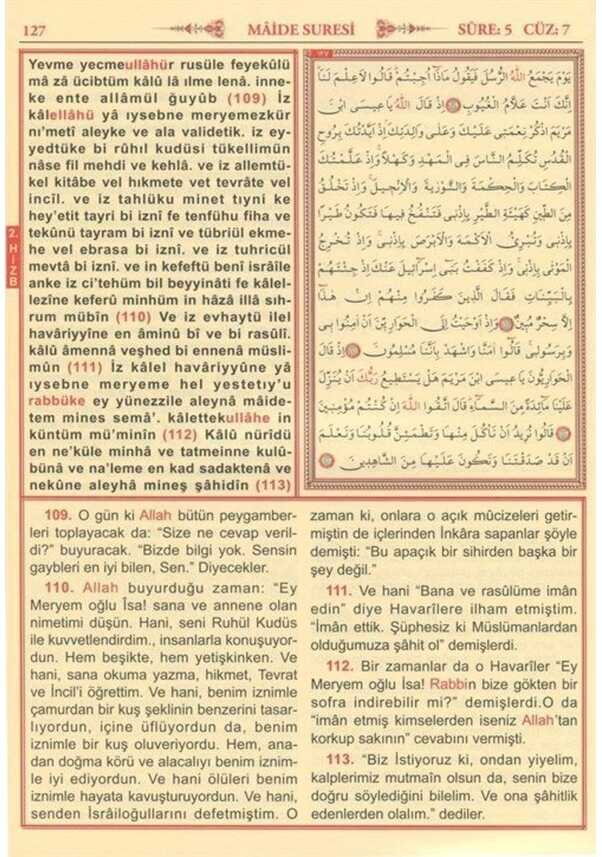 127 MÂİDE SURESİ SÛRE: 5 CÜZ: 7
2. HİZB
Yevme yecmeullâhür rusüle feyekûlü
mâ zâ ücibtüm kâlû lâ ılme lenâ. inne-
ke ente allâmül ğuyûb (109) İz
kâlellâhü yâ ıysebne meryemezkür
nı'metî aleyke ve ala validetik. iz ey-
yedtüke bi rûhıl kudüsi tükellimün
nâse fil mehdi ve kehlâ. ve iz allemtü-
kel kitâbe vel hıkmete vet tevrâte vel
incîl. ve iz tahlüku minet tıyni ke
hey'etit tayri bi iznî fe tenfühu fiha ve
tekûnü tayram bi iznî ve tübriül ekme-
he vel ebrasa bi iznî. ve iz tuhricül
mevtâ bi iznî. ve in kefeftü benî isrâîle
anke iz ci'tehüm bil beyyinâti fe kâlel-
lezîne keferû minhüm in hâzâ illâ sıh-
rum mübîn (110) Ve iz evhaytü ilel
havâriyyîne en âminû bî ve bi rasûlî.
kâlû âmennâ veşhed bi ennenâ müsli-
mûn (111) İz kâlel havâriyyûne yâ
ıysebne meryeme hel yestetıy'u
rabbüke ey yünezzile aleynâ mâidе-
tem mines semâ'. kâlettekullâhe in
küntüm mü'minîn (112) Kâlû nürîdü
en ne'küle minhâ ve tatmeinne kulû-
bünâ ve na'leme en kad sadaktenâ ve
nekûne aleyhâ mineş şâhidîn (113)
يَوْمَ يَجْمَعُ اللّٰهُ الرُّسُلَ فَيَقُولُ مَاذَٓا اُجِبْتُمْۜ قَالُوا لَا عِلْمَ لَنَاۜ
اِنَّكَ اَنْتَ عَلَّامُ الْغُيُوبِ اِذْ قَالَ اللّٰهُ يَا عِيسَى ابْنَ
مَرْيَمَ اذْكُرْ نِعْمَتِي عَلَيْكَ وَعَلٰى وَالِدَتِكَۢ اِذْ اَيَّدْتُكَ بِرُوحِ
الْقُدُسِ تُكَلِّمُ النَّاسَ فِي الْمَهْدِ وَكَهْلًاۚ وَاِذْ عَلَّمْتُكَ
الْكِتَابَ وَالْحِكْمَةَ وَالتَّوْرٰيةَ وَالْاِنْجِيلَۚ وَاِذْ تَخْلُقُ
مِنَ الطِّينِ كَهَيْـَٔةِ الطَّيْرِ بِاِذْنِي فَتَنْفُخُ فِيهَا فَتَكُونُ طَيْرًا
بِاِذْنِي وَتُبْرِئُ الْاَكْمَهَ وَالْاَبْرَصَ بِاِذْنِيۚ وَاِذْ تُخْرِجُ
الْمَوْتٰى بِاِذْنِيۚ وَاِذْ كَفَفْتُ بَنِٓي اِسْرَٓائِيلَ عَنْكَ اِذْ جِئْتَهُمْ
بِالْبَيِّنَاتِ فَقَالَ الَّذِينَ كَفَرُوا مِنْهُمْ اِنْ هٰذَٓا
اِلَّا سِحْرٌ مُبِينٌ وَاِذْ اَوْحَيْتُ اِلَى الْحَوَارِيِّنَ اَنْ اٰمِنُوا بِي
وَبِرَسُولِيۚ قَالُٓوا اٰمَنَّا وَاشْهَدْ بِاَنَّنَا مُسْلِمُونَ اِذْ قَالَ
الْحَوَارِيُّونَ يَا عِيسَى ابْنَ مَرْيَمَ هَلْ يَسْتَطِيعُ رَبُّكَ اَنْ يُنَزِّلَ
عَلَيْنَا مَٓائِدَةً مِنَ السَّمَٓاءِۜ قَالَ اتَّقُوا اللّٰهَ اِنْ كُنْتُمْ مُؤْمِنِينَ
قَالُوا نُرِيدُ اَنْ نَأْكُلَ مِنْهَا وَتَطْمَئِنَّ قُلُوبُنَا وَنَعْلَمَ
اَنْ قَدْ صَدَقْتَنَا وَنَكُونَ عَلَيْهَا مِنَ الشَّاهِدِينَ
109. O gün ki Allah bütün peygamber-
leri toplayacak da: “Size ne cevap veril-
di?” buyuracak. “Bizde bilgi yok. Sensin
gaybleri en iyi bilen, Sen.” Diyecekler.
110. Allah buyurduğu zaman: “Ey
Meryem oğlu Îsa! sana ve annene olan
nimetimi düşün. Hani, seni Ruhül Kudüs
ile kuvvetlendirdim., insanlarla konuşuyor-
dun. Hem beşikte, hem yetişkinken. Ve
hani, sana okuma yazma, hikmet, Tevrat
ve İncil’i öğrettim. Ve hani, benim iznimle
çamurdan bir kuş şeklinin benzerini tasar-
lıyordun, içine üflüyordun da, benim
iznimle bir kuş oluveriyordu. Hem, ana-
dan doğma körü ve alacalıyı benim iznim-
le iyi ediyordun. Ve hani ölüleri benim
iznimle hayata kavuşturuyordun. Ve hani,
senden İsrâiloğullarını defetmiştim. O
zaman ki, onlara o açık mûcizeleri getir-
miştin de içlerinden İnkâra sapanlar şöyle
demişti: “Bu apaçık bir sihirden başka bir
şey değil.”
111. Ve hani “Bana ve rasûlüme imân
edin” diye Havarîlere ilham etmiştim.
“İmân ettik. Şüphesiz ki Müslümanlardan
olduğumuza şâhit ol” demişlerdi.
112. Bir zamanlar da o Havariler “Ey
Meryem oğlu Îsa! Rabbin bize gökten bir
sofra indirebilir mi?” demişlerdi.O da
“imân etmiş kimselerden iseniz Allah’tan
korkup sakının” cevabını vermişti.
113. “Biz İstiyoruz ki, ondan yiyelim,
kalplerimiz mutmaîn olsun da, senin bize
doğru söylediğini bilelim. Ve ona şâhitlik
edenlerden olalım.” dediler.